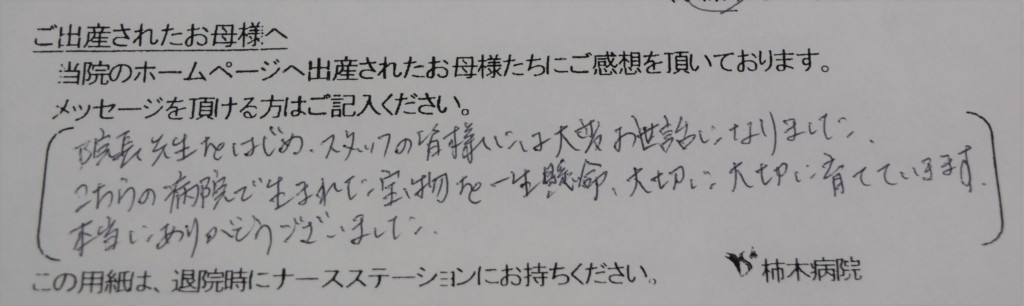 ご出産されたお母様へ
当院のホームページへ出産されたお母様たちにご感想を頂いております。
メッセージを頂ける方はご記入ください。
院長先生をはじめ、スタッフの皆様には大変お世話になりました。
こちらの病院で生まれた宝物を一生懸命、大切に大切に育てていきます。
本当にありがとうございました。
この用紙は、退院時にナースステーションにお持ちください。
柿木病院